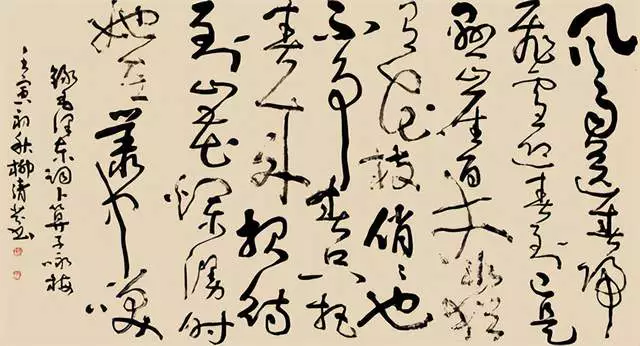 风雨送春归
飞雪迎春到已是
悬崖百丈冰犹
有花枝俏〻也
不争春只把
春来报待
到山花烂漫时
她在叢中笑
録毛泽东词卜算子咏梅
壬寅初秋柳清